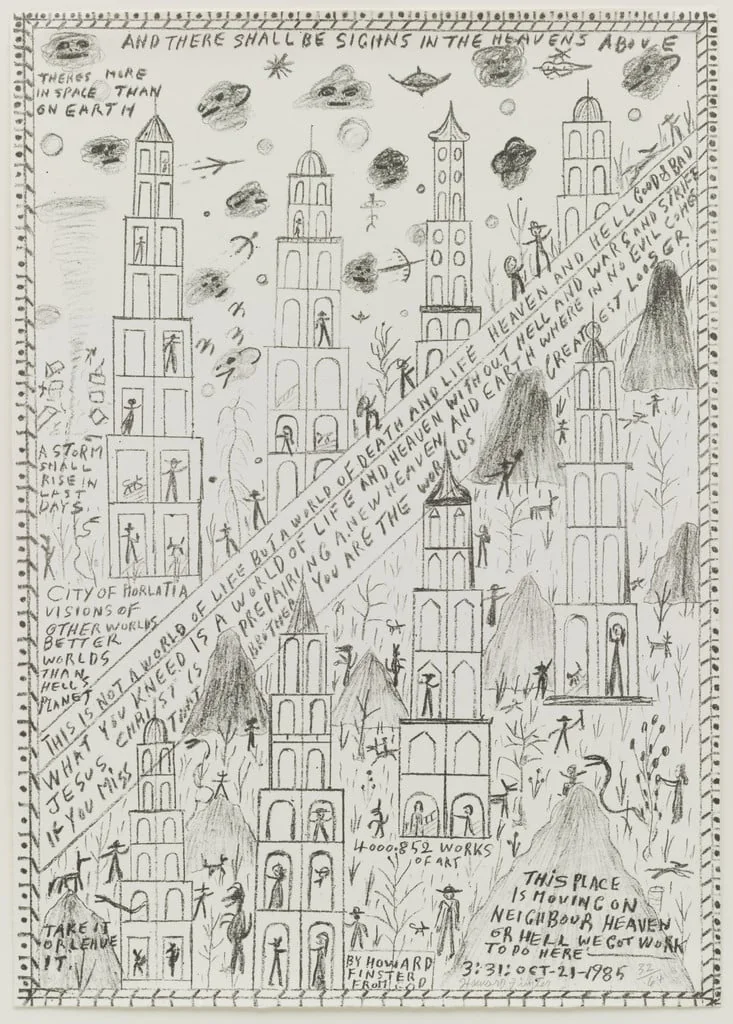 AND THERE SHALL BE SIGHNS IN THE HEAVENS ABOVE
THERES MORE
IN SPACE THAN
ON EARTH
A STORM
SHALL
RISE IN
LAST
DAYS.
CITY OF HORLATIA
VISIONS OF
OTHER WORLDS
BETTER
WORLDS
THAN
HELLS
PLANET
THIS IS NOT A WORLD OF LIFE BUT A WORLD OF DEATH AND LIFE HEAVEN AND HELL GOOD & BAD
WHAT YOU KNEED IS A WORLD OF LIFE AND HEAVEN WITHOUT HELL AND WARS AND STRIFE
JESUS CHRIST IS PREPAIRING A NEW HEAVEN AND EARTH WHERE IN NO EVIL COMES
IF YOU MISS THAT BROTHER YOU ARE THE WORLDS GREATEST LOOSER.
4000.852 WORKS
OF ART
THIS PLACE
IS MOVING ON
NEIGHBOUR HEAVEN
OR HELL WE GOT WORK
TO DO HERE
3:31: OCT-21-1985
TAKE IT
OR LEAVE
IT.
BY HOWARD
FINSTER
FROM GOD
Howard Finster